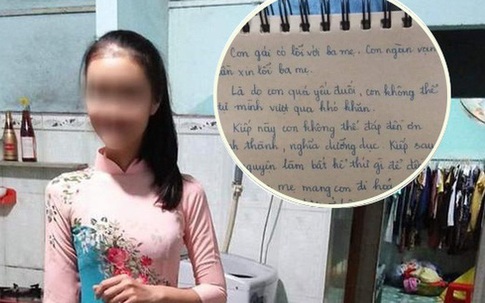 Con gái có lỗi với ba mẹ. Con ngàn vạn
xin lỗi ba mẹ.
Là do con quá yếu đuối, con không thể
mình vượt qua khó khăn.
Kiếp này con không thể đáp đền ơn
thành, nghĩa dưỡng dục. Kiếp sau
nguyện làm bất kể thứ gì để
mẹ mang con đi